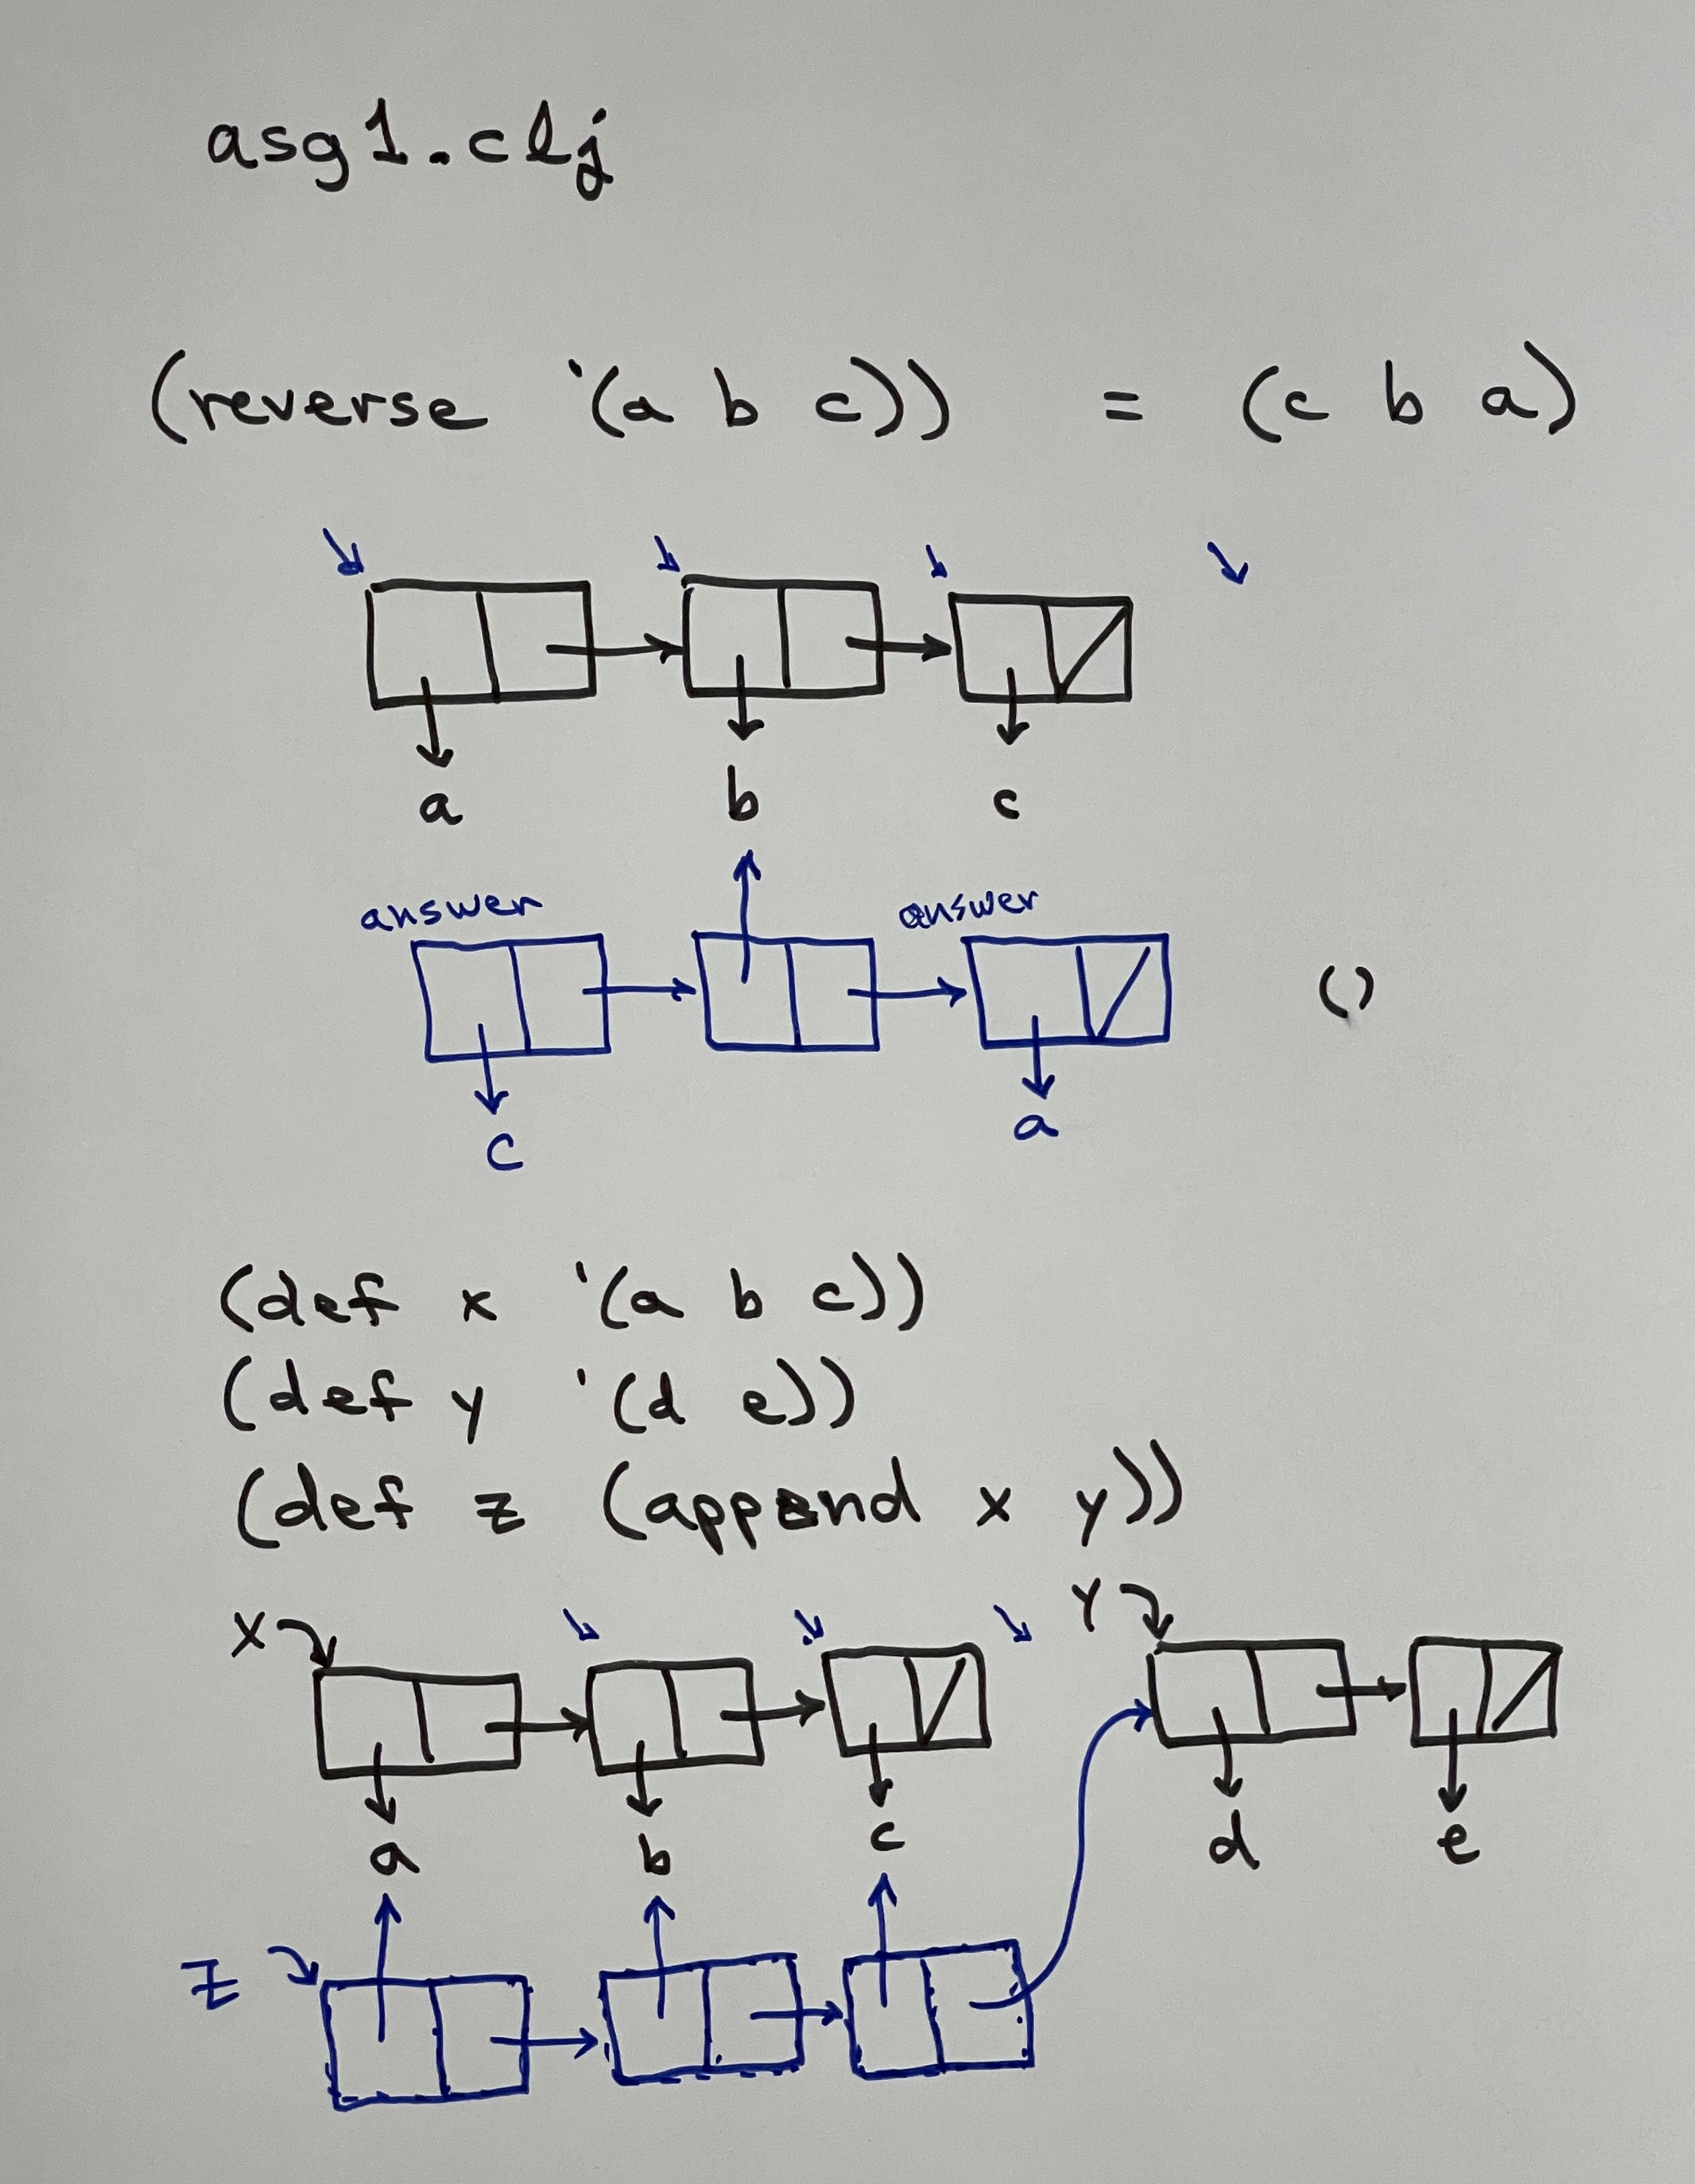 asg1.clj
(reverse '(a b c)) = (c b a)
a b c
answer answer
()
c a
(def x '(a b c))
(def y '(d e))
(def z (append x y))
X Y
a b c d e
Z